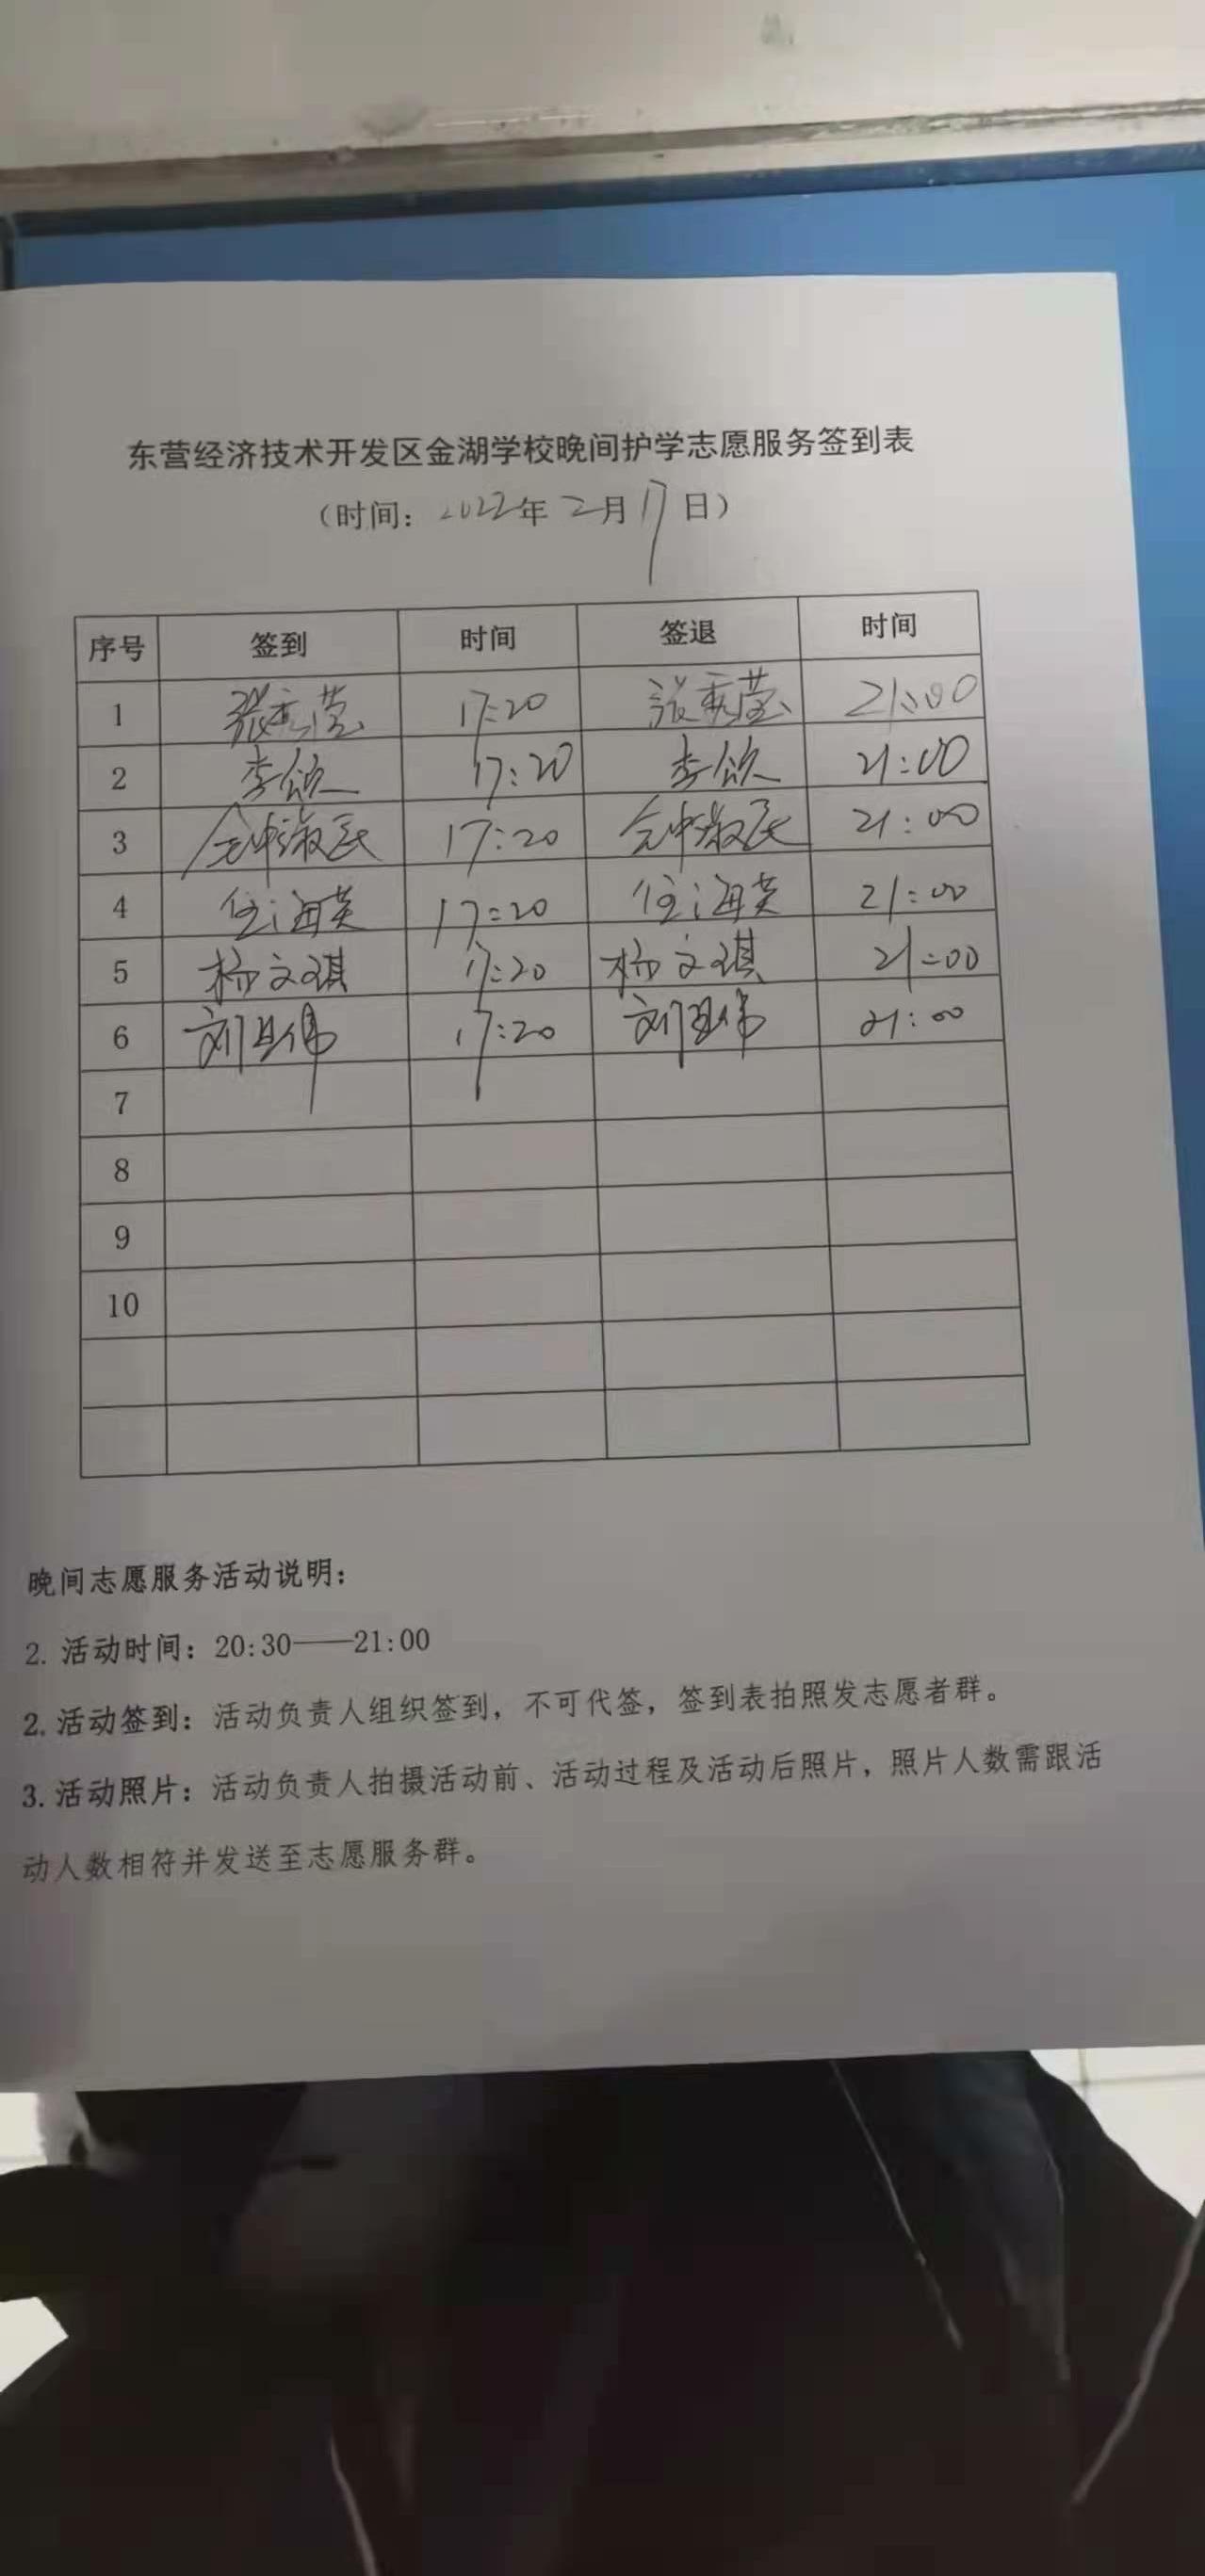 东营经济技术开发区金湖学校晚间护学志愿服务签到表
（时间：2022年2月17日）
序号 签到 时间 签退 时间
1 张秀莹 17:20 张秀莹 21:00
2 李颂 17:20 李颂 21:00
3 17:20 21:00
4 任海英 17:20 任海英 21:00
5 杨文琪 17:20 杨文琪 21:00
6 17:20 21:00
7
8
9
10
晚间志愿服务活动说明：
2. 活动时间：20:30——21:00
2. 活动签到：活动负责人组织签到，不可代签，签到表拍照发志愿者群。
3. 活动照片：活动负责人拍摄活动前、活动过程及活动后照片，照片人数需跟活
动人数相符并发送至志愿服务群。